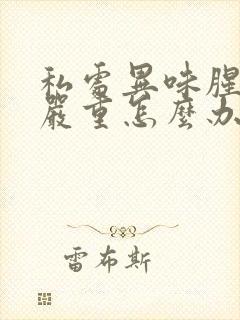 私處異味腥
嚴重怎麼办
雷布斯